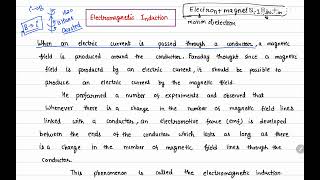 Electromagnetic Induction
Electron + magnet
motion of electron
When an electric current is passed through a conductor, a magnetic
field is produced around the conductor. Faraday thought since a magnetic
field is produced by an electric current, it should be possible to
produce an electric current by the magnetic field.
He performed a number of experiments and observed that
Whenever there is a change in the number of magnetic field lines
linked with a conductor, an electromotive force (emf) is developed
between the ends of the conductor which lasts as long as there
is a change in the number of magnetic field lines through the
conductor.
This phenomenon is called the electromagnetic induction